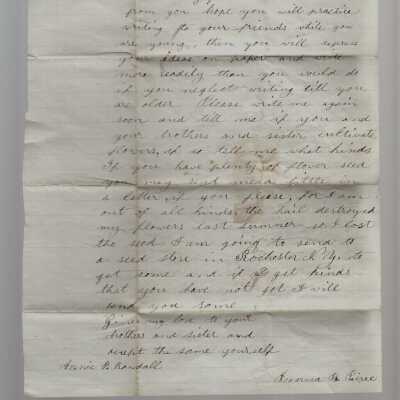 from you hope you will practice
writing to your friends while you
are young, then you will express
your ideas on paper and write
more readily than you would do
if you neglect writing till you
are older Please write me again
soon and tell me if you and
your brothers and sister cultivate
flowers, if so tell me what kinds
If you have plenty of flower seed
you may just send little in
a letter, if you please, for I am
out of all kinds, the hail destroyed
my flowers last summer so I lost
the seed I am going to send to
a seed store in Rochester N Y to
get some and if I get kinds
that you have not got I will
send you some
my love to your
brothers and sister and
accept the same yourself
Annie B. Randall